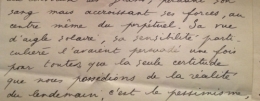 sang mais accroissant ses forces, au
centre même du perpétuel. Sa vue
d'aigle solaire, sa sensibilité parti
culière l'avaient persuadé une fois
pour toutes que la seule certitude
que nous possédions de la réalité
du lendemain, c'est le pessimisme,